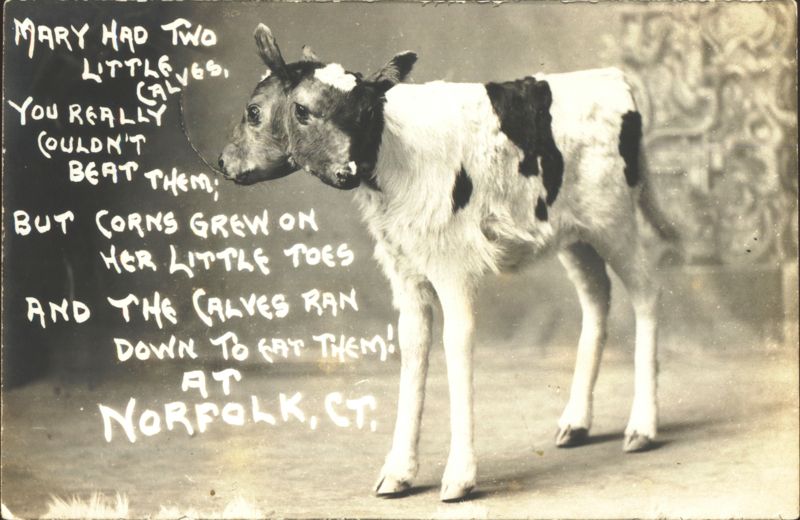 MARY HAD TWO
LITTLE
CALVES,
YOU REALLY
COULDN'T
BEAT THEM;
BUT CORNS GREW ON
HER LITTLE TOES
AND THE CALVES RAN
DOWN TO EAT THEM!
AT
NORFOLK, CT.